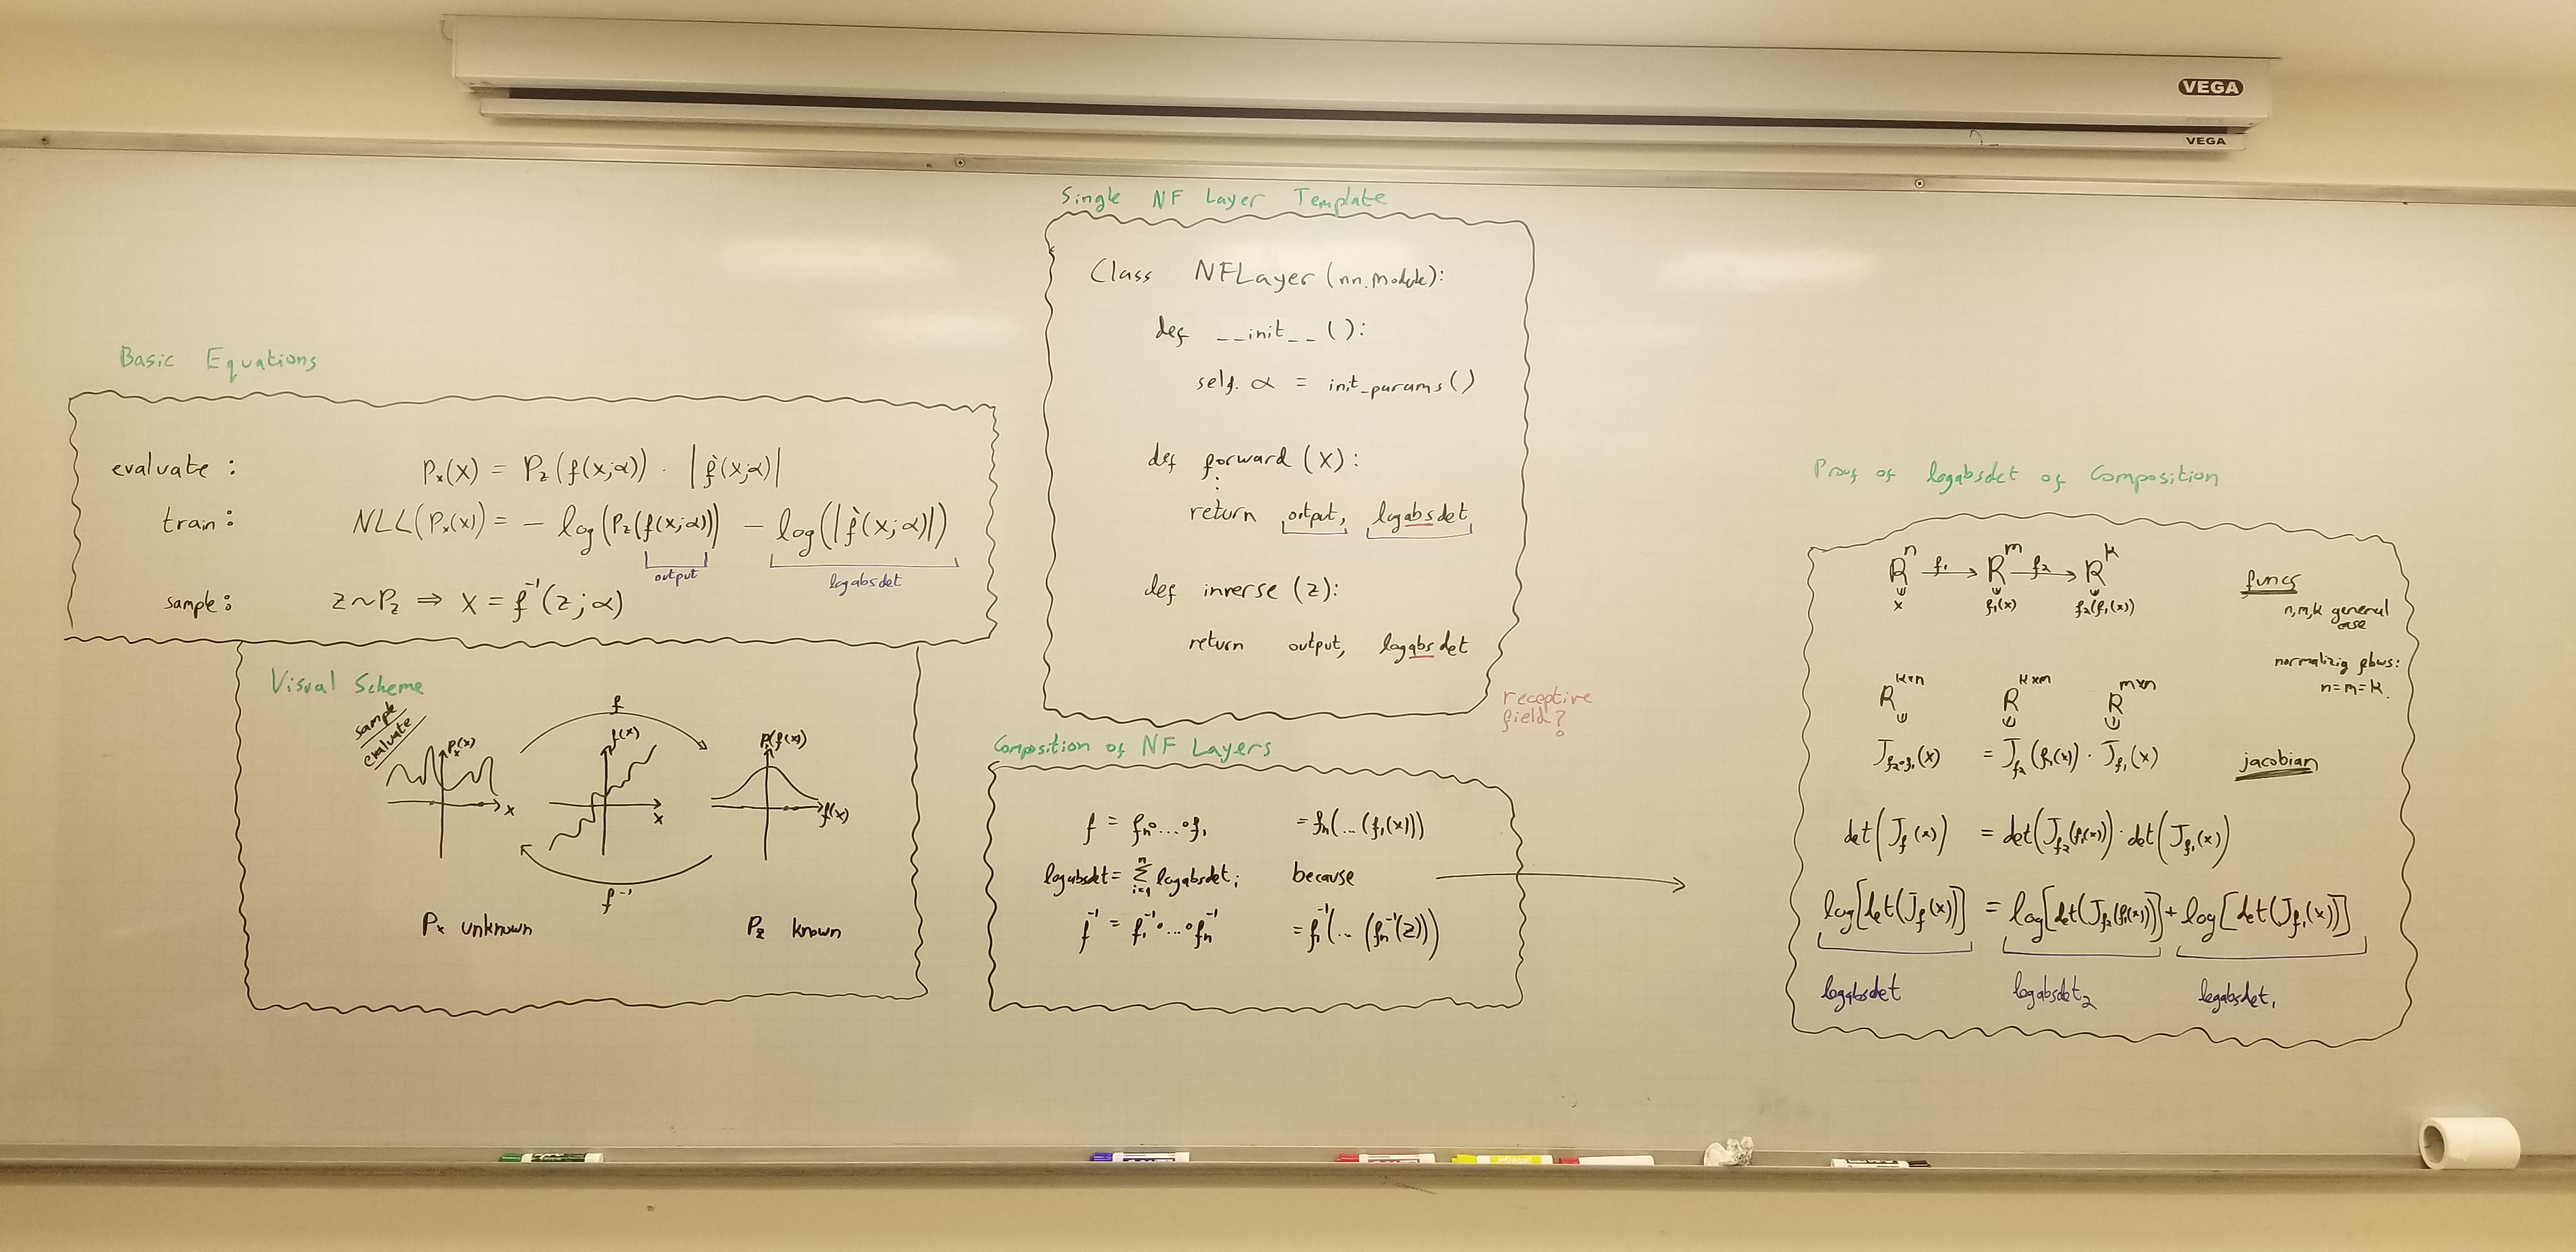 VEGA
VEGA
Basic Equations
evaluate: Pₓ(x) = P_z(f(x;α)) · |f'(x;α)|
train: NLL(Pₓ(x)) = - log(P_z(f(x;α))) - log(|f'(x;α)|)
output logabsdet
sample: z~P_z ⇒ x = f⁻¹(z;α)
Visual Scheme
sample
evaluate
f
Pₓ(x)
x
f(x)
x
P_z(f(x))
f(x)
f⁻¹
Pₓ unknown P_z known
Single NF Layer Template
Class NFLayer (nn.Module):
def __init__():
self.α = init_params()
def forward (x):
⋮
return output, logabsdet
def inverse (z):
return output, logabsdet
receptive
field?
Composition of NF Layers
f = fₙ∘...∘f₁ = fₙ(...(f₁(x)))
logabsdet = Σⁿᵢ₌₁ logabsdetᵢ because
f⁻¹ = f₁⁻¹∘...∘fₙ⁻¹ = f₁⁻¹(...(fₙ⁻¹(z)))
Proof of logabsdet of Composition
Rⁿ f₁→ Rᵐ f₂→ Rᵏ
x f₁(x) f₂(f₁(x))
funcs
n,m,k general
case
normalizig flows:
n=m=k.
R^{k×n} R^{k×m} R^{m×n}
J_{f₂∘f₁}(x) = J_{f₂}(f₁(x)) · J_{f₁}(x)
jacobian
det(J_f(x)) = det(J_{f₂}(f₁(x))) · det(J_{f₁}(x))
log[det(J_f(x))] = log[det(J_{f₂}(f₁(x)))] + log[det(J_{f₁}(x))]
logabsdet logabsdet₂ logabsdet₁